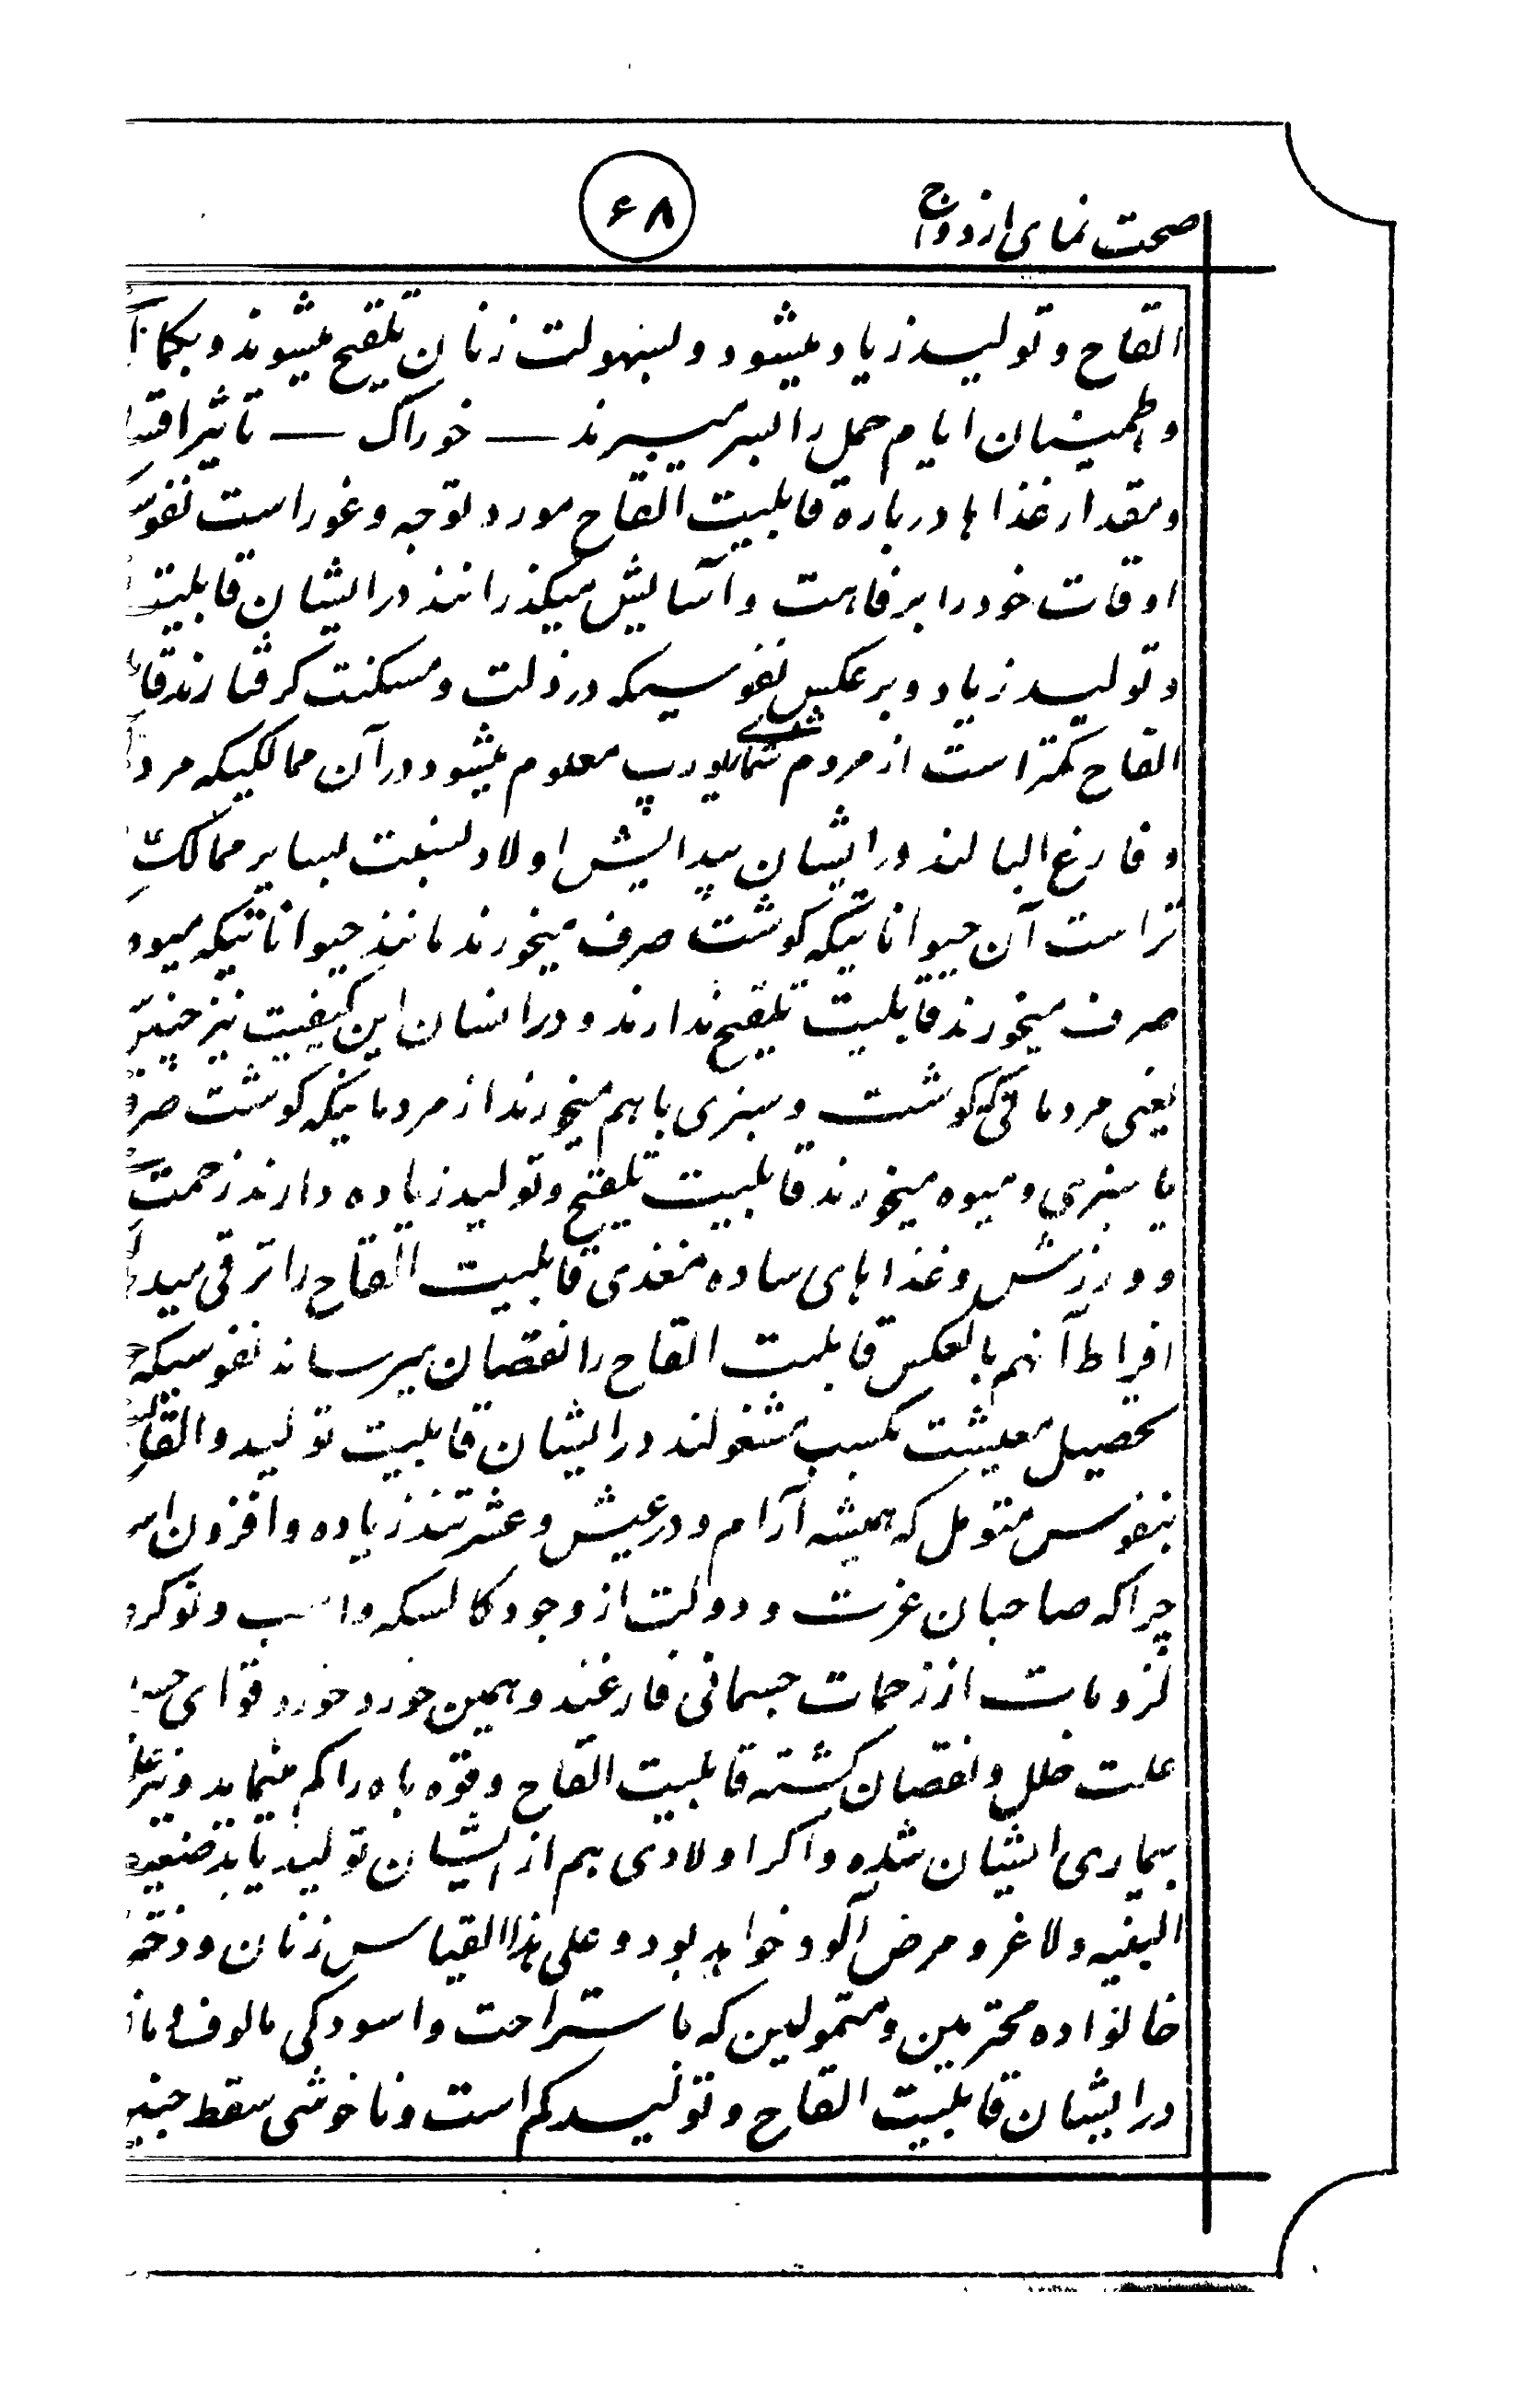 صحت نمای ازدواج
۶۸
القاح و تولید زیاد میشود و بسهولت زنان تلقیح میشوند و بکمال
و اطمینان ایام حمل را بسر میبرند — خوراک — تاثیر
و مقدار غذاها درباره قابلیت القاح مورد توجه و غور است
اوقات خود را برفاهت و آسایش میگذرانند در ایشان قابلیت
و تولید زیاد و برعکس نفوسیکه در ذلت و مسکنت گرفتارند
القاح کمتر است از مردم شمالی یورپ معلوم میشود در آن ممالکیکه
و فارغ البالند در ایشان پیدایش اولاد بنسبت بسایر ممالک
تر است آن حیواناتیکه گوشت صرف میخورند مانند حیواناتیکه میوه
صرف میخورند قابلیت تلقیح ندارند و در انسان این کیفیت نیز
یعنی مردمانیکه گوشت و سبزی باهم میخورند از مردمانیکه گوشت صرف
یا سبزی و میوه میخورند قابلیت تلقیح و تولید زیاده دارند زحمت
و ورزش و غذاهای ساده مغذی قابلیت القاح را ترقی
افراط آنهم بالعکس قابلیت القاح را نقصان میرساند نفوسیکه
تحصیل معیشت بکسب مشغولند در ایشان قابلیت تولید و القاح
بنفوس متومل که همیشه آرام و در عیش و عشرتند زیاده و افزون
چرا که صاحبان عزت و دولت از وجود کالسکه و اسب و نوکر
لزومات از زحمات جسمانی فارغند و همین خورد خورد قوای
علت خلل و نقصان گشته قابلیت القاح و قوه باه را کم مینماید و نیز
بیماری ایشان شده و اگر اولادی هم از ایشان تولید یابد ضعیف
البنیه و لاغر و مرض آلود خواهد بود و علی هذا القیاس زنان و
خانواده محترمین و متمولین که با ستراحت و اسودگی مالوف
در ایشان قابلیت القاح و تولید کم است و ناخوشی سقط جنین